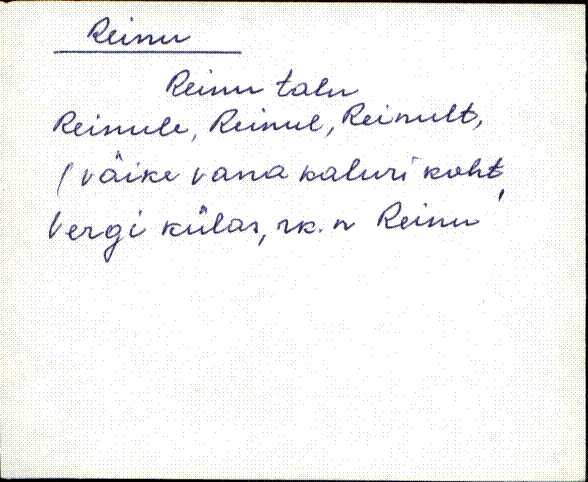 Reinu
Reinu talu
Reinule, Reinul, Reinult,
(väike vana kaluri koht,
Vergi külas, rk. n Reinu